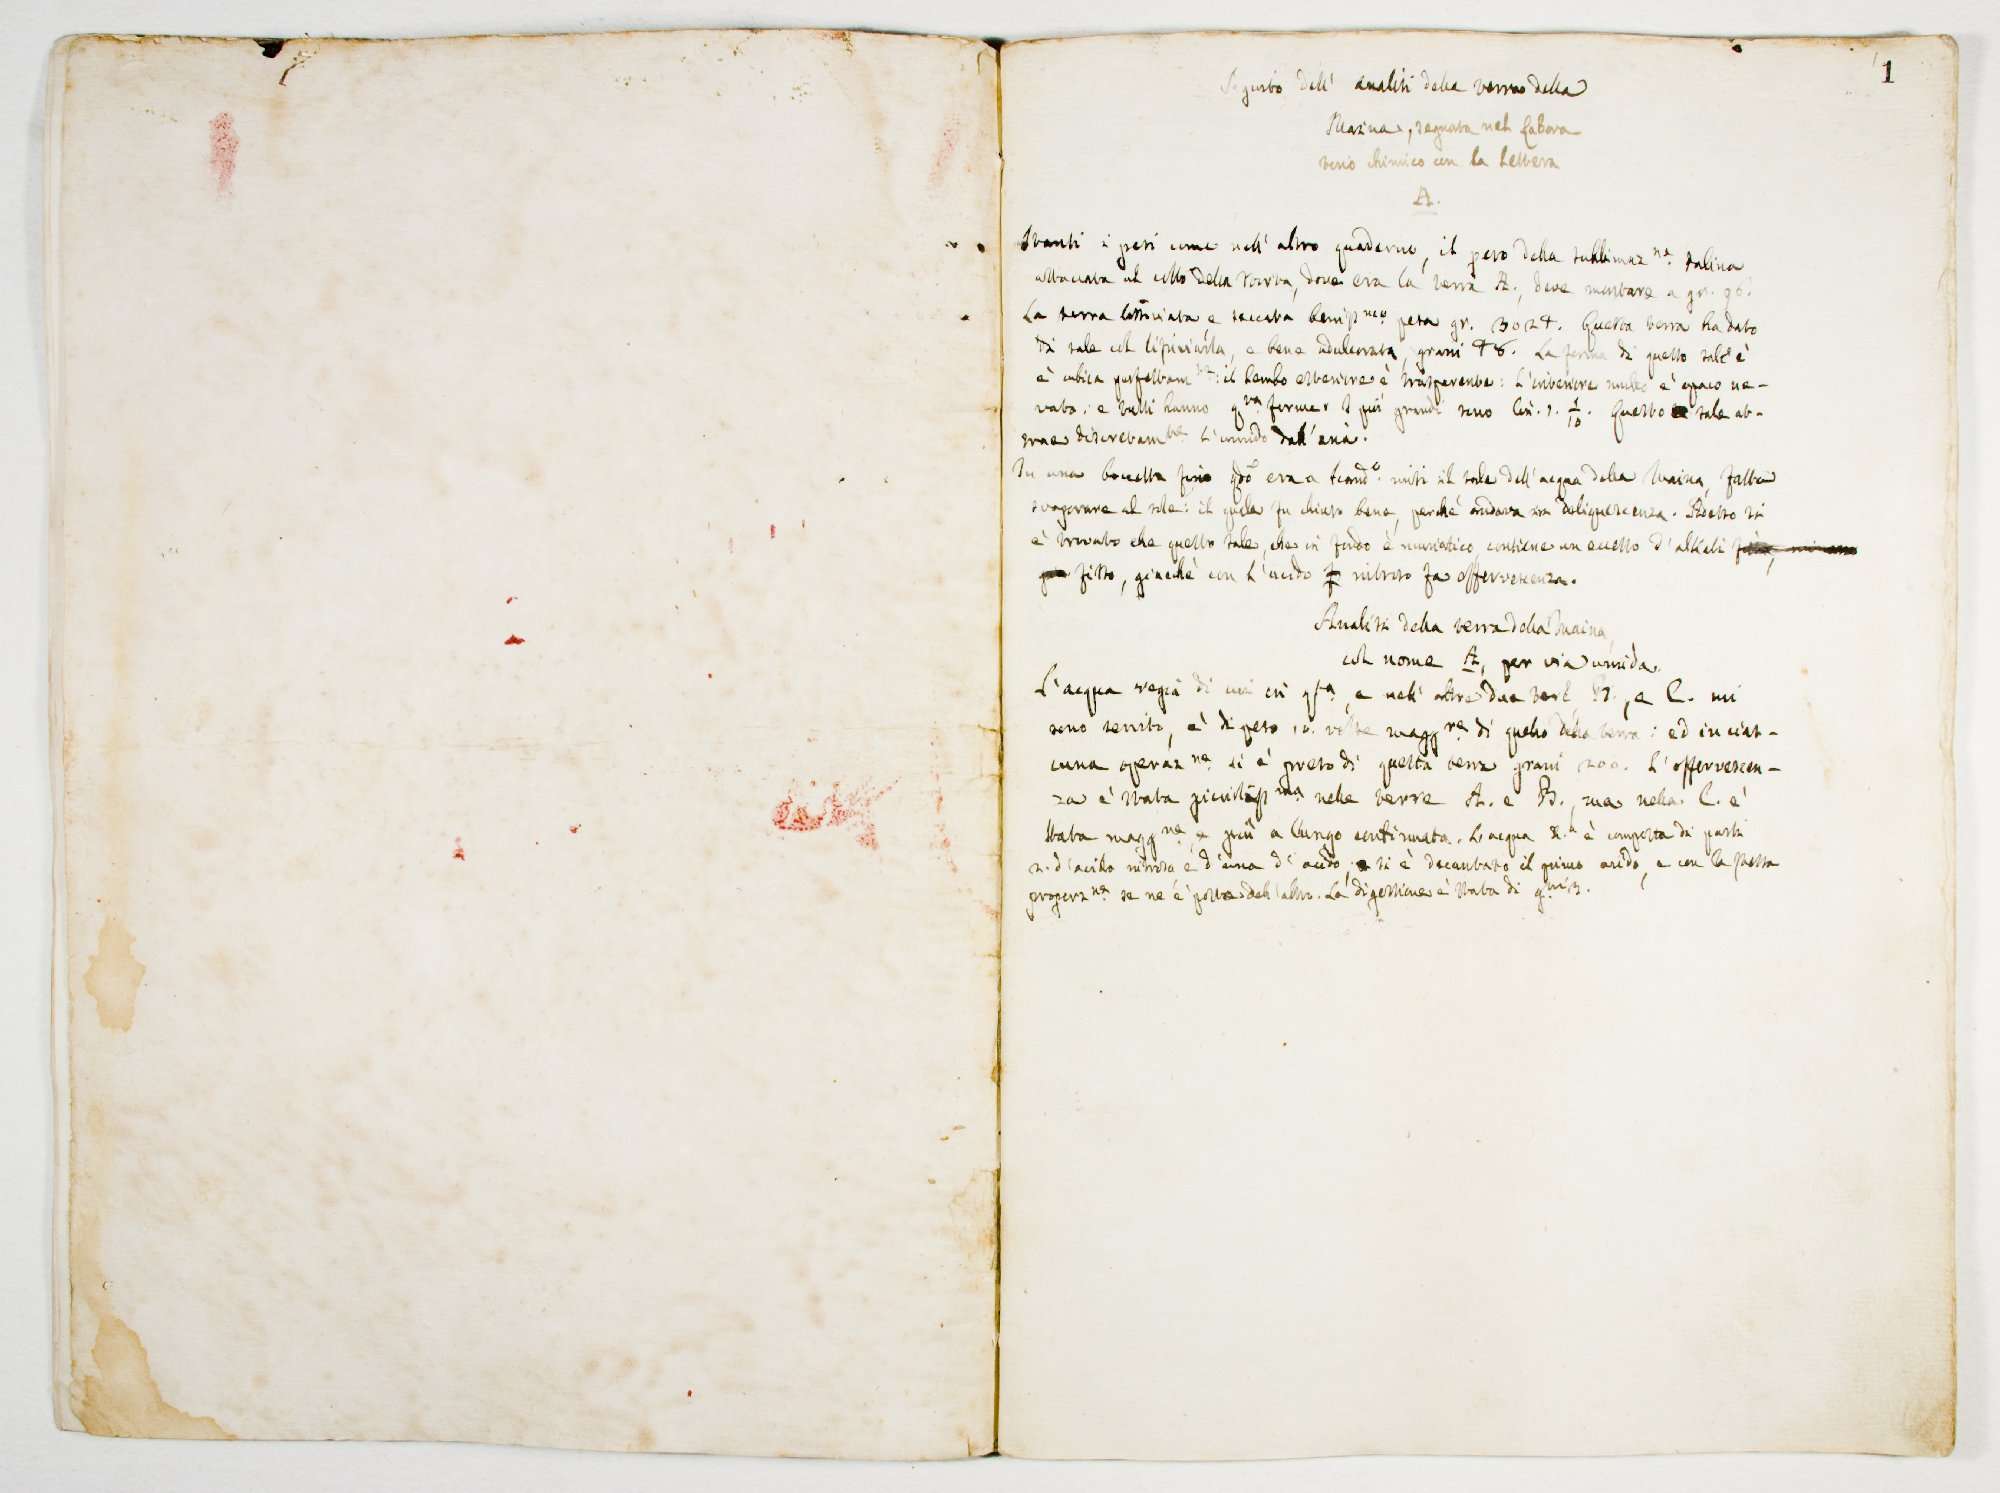 1
Seguito dell' analisi della terra della
Maina, segnata nel Labora
torio chimico con la lettera
A.
Stanti i pesi come nell' altro quaderno, il peso della sublimaz.ne salina
attaccata al collo della storta, dove era la terra A., deve montare a gr. 96
La terra lissiviata e seccata benissmo pesa gr. 3024. Questa terra ha dato
di sale col lissiviarla, e bene adulcorata, grani 48. La forma di questo sale è
è cubica perfettam.te: il lembo esteriore è trasparente: l'interiore è opaco ne-
vato: e tutti hanno q.ta forma. I più grandi sono lin. 1. 1/10. Questo sale at-
trae discretam.te l'umido dall'aria.
In una boccetta era a misi il sale dell'acqua della Maina, fatta
svaporare al sole: il quale fu chiuso bene, perchè andava in deliquescenza. Adesso si
è trovato che questo sale, che in fondo è muriatico, contiene un eccesso d'alkali
fisso, giacchè con l'acido nitroso fa effervescenza.
Analisi della terra della Maina,
col nome A, per via umida.
L'acqua regia di cui in q.sta, e nell' altre due terre B., e C. mi
sono servito, è di peso 10. volte magg.re di quello della terra: ed in cias-
cuna operaz.ne si è preso di questa terra grani 200. L'effervescen-
za è stata piccolissma nelle terre A. e B., ma nella C. è
stata magg.re, e più a lungo continuata. L'acqua R.a è composta di parti
2. d'acido nitroso e d'una d' acido; si è decantato il primo acido, e con la stessa
proporz.ne se ne è posto dell'altro. La digestione è stata di g.ni 3.